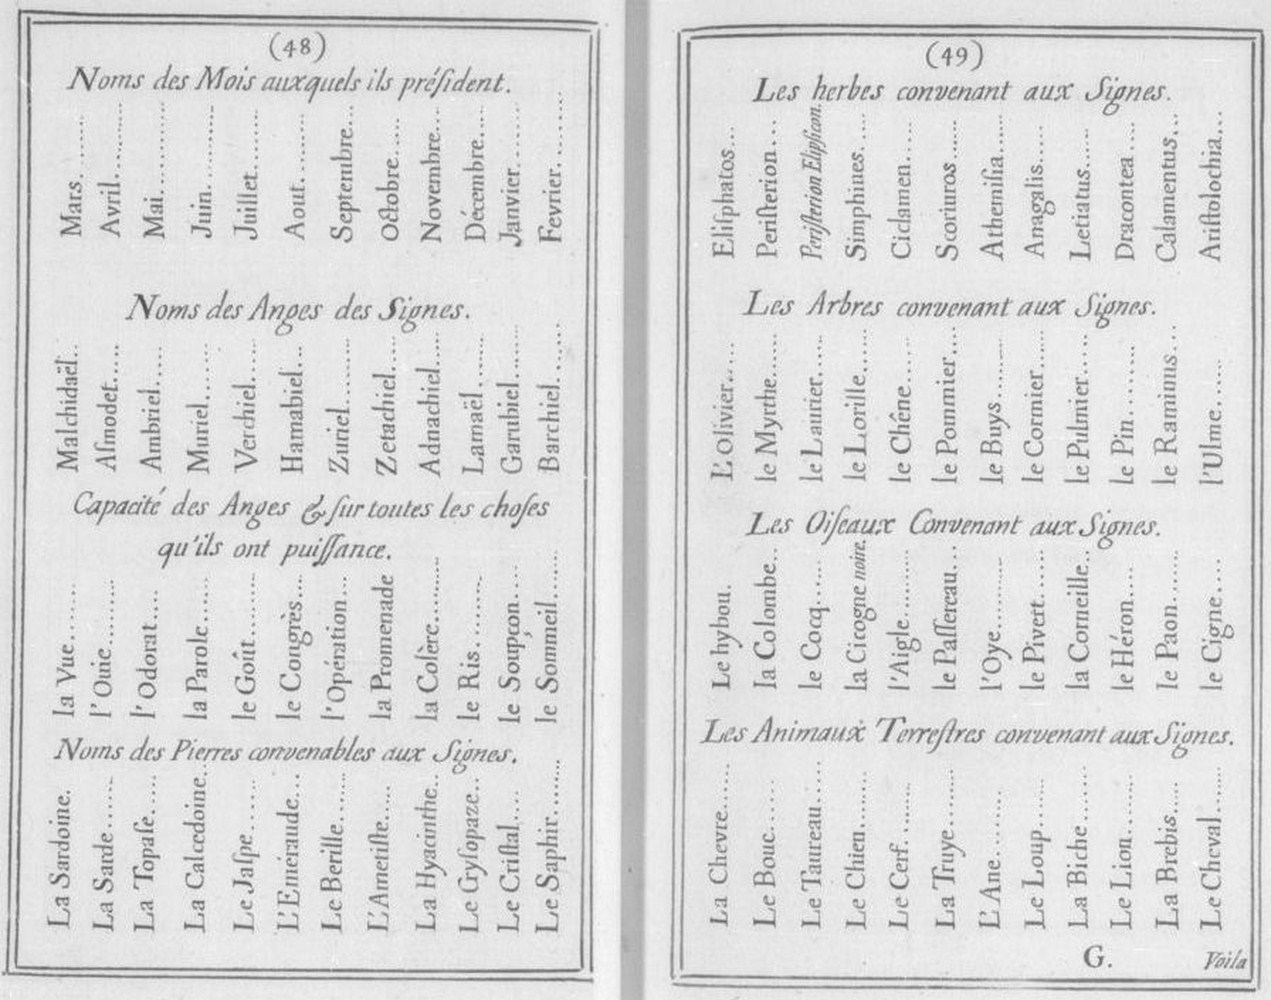 (48)
Noms des Mois auxquels ils préſident.
Mars......
Avril.........
Mai..........
Juin.........
Juillet.......
Aout.......
Septenbre...
Octobre....
Novembre...
Décembre....
Janvier......
Fevrier........
Noms des Anges des Signes.
Malchidaël..
Aſmodet....
Ambriel....
Muriel......
Verchiel....
Hamabiel...
Zuriel.......
Zetachiel....
Adnachiel....
Lamaël......
Garubiel......
Barchiel......
Capacité des Anges & ſur toutes les choſes
qu'ils ont puiſſance.
la Vue......
l'Ouie........
l'Odorat....
la Parole.....
le Goût.......
le Congrès...
l'Opération...
la Promenade
la Colère.......
le Ris........
le Soupçon....
le Sommeil......
Noms des Pierres convenables aux Signes.
La Sardoine.
La Sarde.....
La Topaſe....
La Calcedoine..
Le Jaſpe.....
L'Emeraude...
Le Berille.....
L'Ametiſte....
La Hyacinthe..
Le Cryſopaze..
Le Criſtal....
Le Saphir......
(49)
Les herbes convenant aux Signes.
Eliſphatos...
Periſterion...
Periſterion Elipſicon.
Simphiues....
Ciclamen....
Scoriuros....
Athemiſia....
Anagalis.....
Letiatus.....
Dracontea....
Calamentus...
Ariſtolochia...
Les Arbres convenant aux Signes.
L'Olivier....
le Myrthe.....
le Laurier.....
le Lorille.....
le Chêne.....
le Pommier...
le Buys.......
le Cormier.....
le Pulmier.....
le Pin........
le Raminus...
l'Ulme......
Les Oiſeaux Convenant aux Signes.
Le hybou.
la Colombe..
le Cocq......
la Cicogne noire.
l'Aigle........
le Paſſereau..
l'Oye........
le Pivert.....
la Corneille..
le Héron....
le Paon......
le Cigne.....
Les Animaux Terreſtres convenant aux Signes.
La Chevre.....
Le Bouc......
Le Taureau....
Le Chien......
Le Cerf.......
La Truye......
L'Ane........
Le Loup......
La Biche......
Le Lion......
La Brebis....
Le Cheval.....
G.
Voila